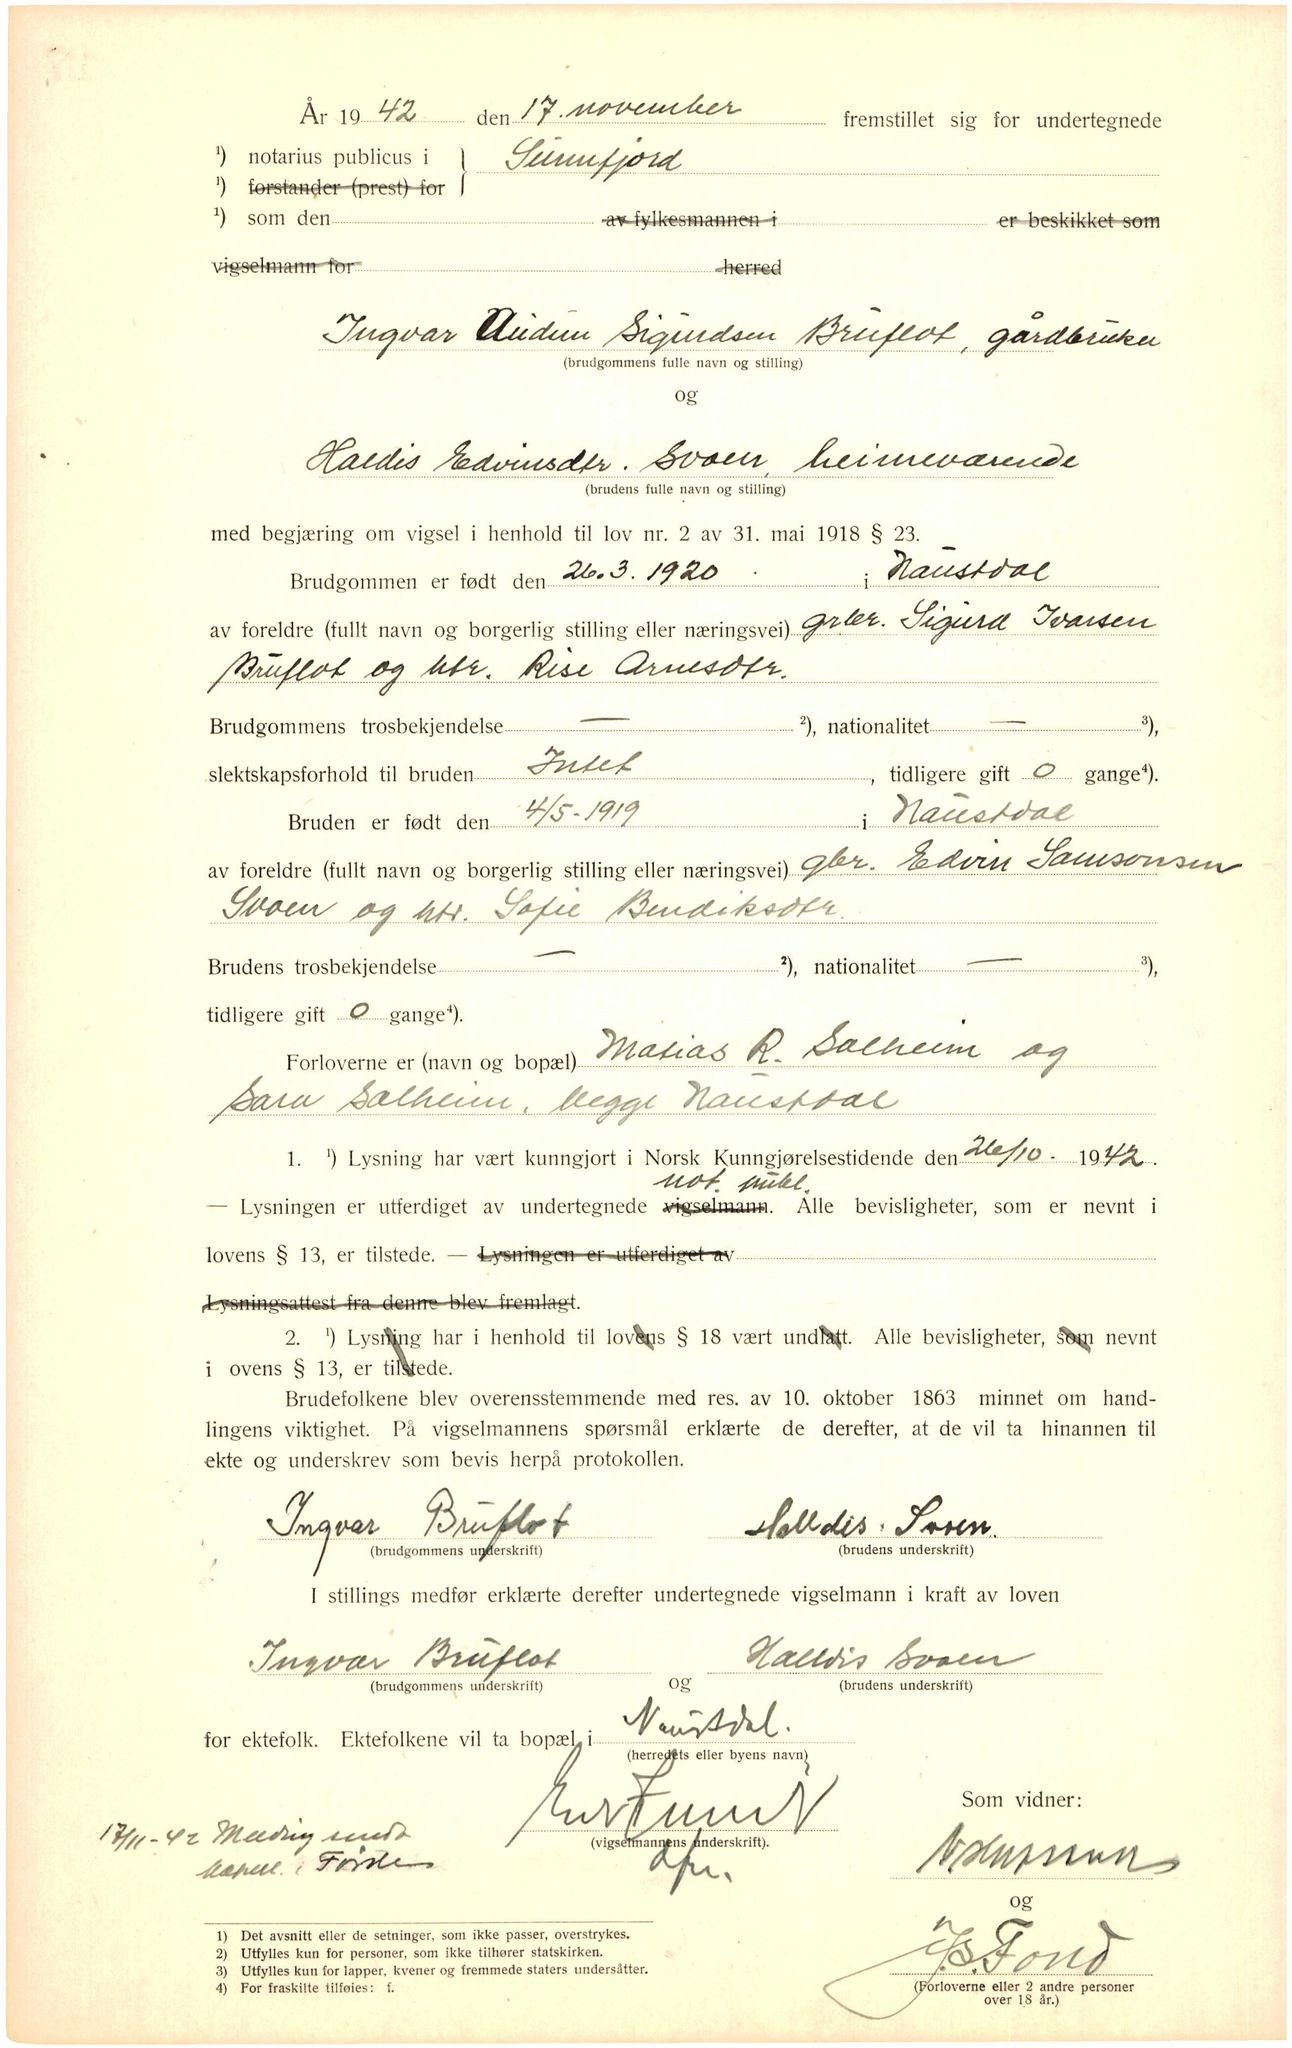 År 1942 den 17. november fremstillet sig for undertegnede
¹) notarius publicus i } Sunnfjord
¹) forstander (prest) for
¹) som den av fylkesmannen i er beskikket som
vigselmann for herred
Ingvar Audun Sigurdsen Bruflot, gårdbruker
(brudgommens fulle navn og stilling)
og
Haldis Edvinsdtr. Svoen, heimeværende
(brudens fulle navn og stilling)
med begjæring om vigsel i henhold til lov nr. 2 av 31. mai 1918 § 23.
Brudgommen er født den 26.3.1920 i Naustdal
av foreldre (fullt navn og borgerlig stilling eller næringsvei) grbr. Sigurd Ivarsen
Bruflot og htr. Rise Arnesdtr.
Brudgommens trosbekjendelse — ²), nationalitet — ³),
slektskapsforhold til bruden Intet, tidligere gift 0 gange⁴).
Bruden er født den 4/5-1919 i Naustdal
av foreldre (fullt navn og borgerlig stilling eller næringsvei) gbr. Edvin Samsonsen
Svoen og htr. Sofie Bendiksdtr.
Brudens trosbekjendelse — ²), nationalitet — ³),
tidligere gift 0 gange⁴).
Forloverne er (navn og bopæl) Matias R. Solheim og
Sara Solheim, begge Naustdal
1. ¹) Lysning har vært kunngjort i Norsk Kunngjørelsestidende den 26/10. 1942.
not. publ.
— Lysningen er utferdiget av undertegnede vigselmann. Alle bevisligheter, som er nevnt i
lovens § 13, er tilstede. — Lysningen er utferdiget av
Lysningsattest fra denne blev fremlagt.
2. ¹) Lysning har i henhold til lovens § 18 vært undlatt. Alle bevisligheter, som nevnt
i ovens § 13, er tilstede.
Brudefolkene blev overensstemmende med res. av 10. oktober 1863 minnet om hand-
lingens viktighet. På vigselmannens spørsmål erklærte de derefter, at de vil ta hinannen til
ekte og underskrev som bevis herpå protokollen.
Ingvar Bruflot Halldis Svoen.
(brudgommens underskrift) (brudens underskrift)
I stillings medfør erklærte derefter undertegnede vigselmann i kraft av loven
Ingvar Bruflot Halldis Svoen
(brudgommens underskrift) og (brudens underskrift)
for ektefolk. Ektefolkene vil ta bopæl i Naustdal.
(herredets eller byens navn)
Som vidner:
(vigselmannens underskrift).
17/11-42 Melding sendt
Førde
og
J.S. Fond
(Forloverne eller 2 andre personer
over 18 år.)
1) Det avsnitt eller de setninger, som ikke passer, overstrykes.
2) Utfylles kun for personer, som ikke tilhører statskirken.
3) Utfylles kun for lapper, kvener og fremmede staters undersåtter.
4) For fraskilte tilføies: f.